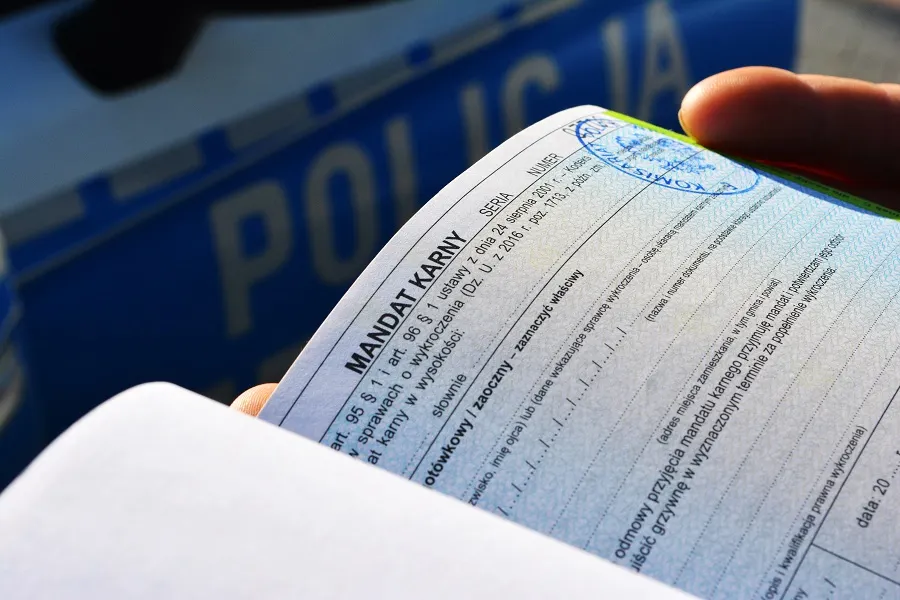 POLICJA
MANDAT KARNY SERIA NUMER
art. 95 § 1 i art. 96 § 1 ustawy z dnia 24 sierpnia 2001 r. – Kodeks
w sprawach o wykroczenia (Dz. U. z 2016 r. poz. 1713, z późn. zm.
at karny w wysokości:
słownie
otówkowy / zaoczny – zaznaczyć właściwy
zwisko, imię ojca) lub (dane wskazujące sprawcę wykroczenia – osobę ukaraną mandatem karnym
(nazwa i numer dokumentu, na podstawie którego ustalono
(adres miejsca zamieszkania, w tym gmina i powiat)
odmowy przyjęcia mandatu karnego przyjmuję mandat i potwierdzam jego odbiór
uiścić grzywnę w wyznaczonym terminie za popełnienie wykroczenia:
(opis i kwalifikacja prawna wykroczenia)
data: 20 .... r